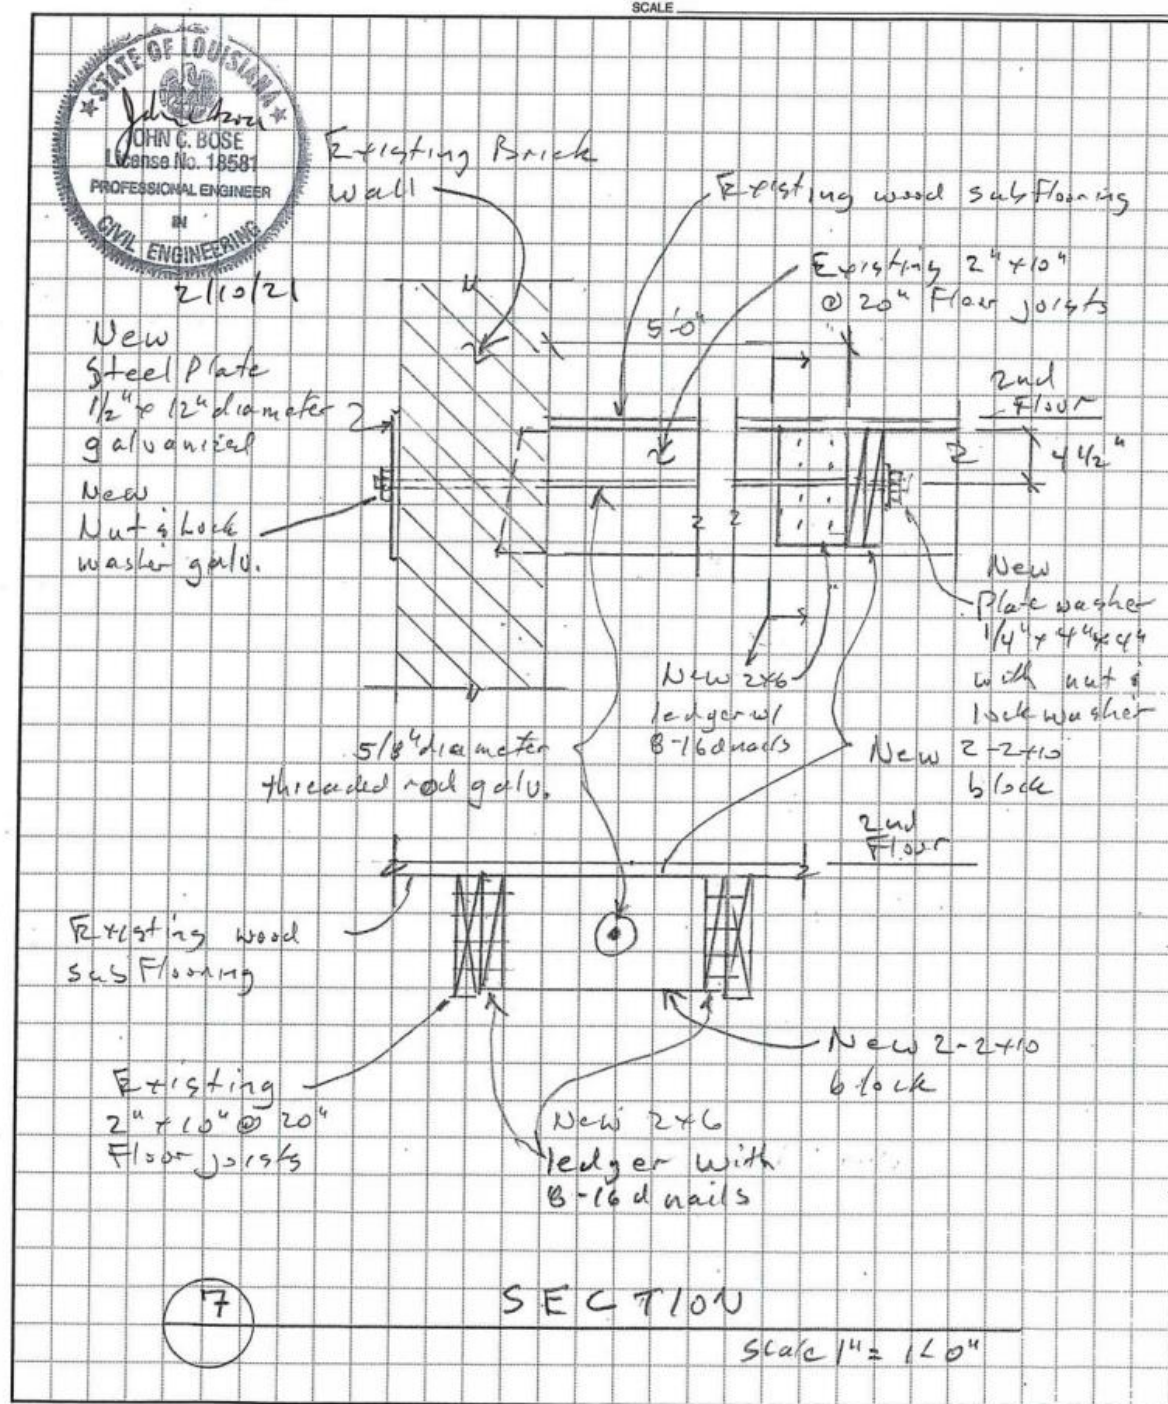 SCALE
STATE OF LOUISIANA
JOHN C. BOSE
License No. 18581
PROFESSIONAL ENGINEER
IN
CIVIL ENGINEERING
2/10/21
Existing Brick
wall
Existing wood subflooring
Existing 2" x 10"
@ 20" Floor joists
5'-0"
New
Steel Plate
1/2" x 12" diameter
galvanized
2nd
Floor
4 1/2"
New
Nut & Lock
washer galv.
New
Plate washer
1/4" x 4" x 4"
with nut &
lock washer
New 2x6
ledger w/
8-16d nails
New 2-2x10
block
5/8" diameter
threaded rod galv.
2nd
Floor
Existing wood
subflooring
New 2-2x10
block
Existing
2" x 10" @ 20"
Floor joists
New 2x6
ledger with
8-16d nails
7
SECTION
Scale 1" = 1'-0"